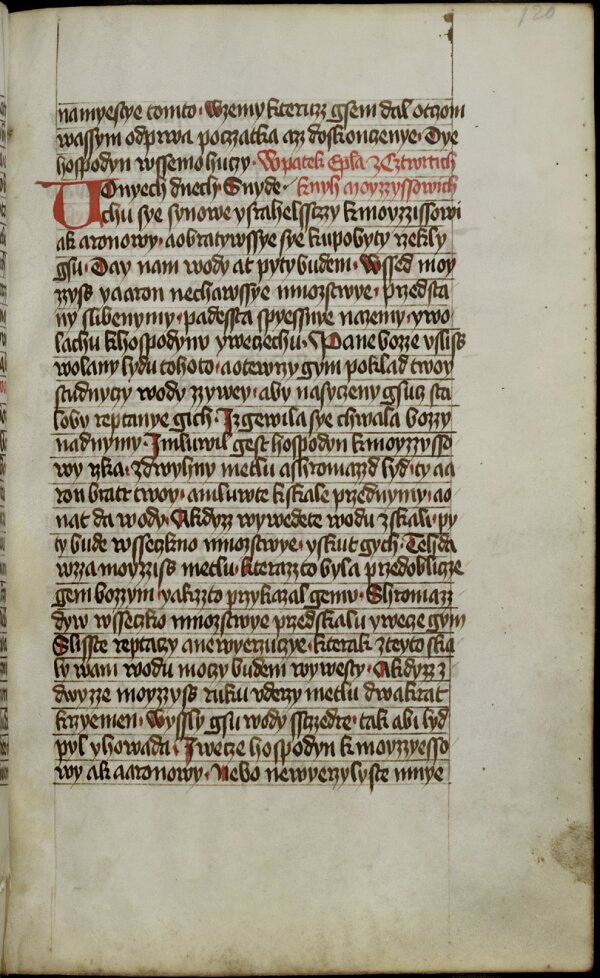 120
namyestye tomto · Wzemy kteruzz gsem dal otczom
wassym odprwa poczatka az doskonczenye · Dye
hospodyn wssemohuczy · Wpatek Epla zCztwrtich
Tonyech dnech · Snyde · knyh moyzzyssowich
chu sye synowe ysrahelssczy kmoyzzissowi
ak aronowy · aobratywssye sye kupobyty rzekly
gsu · Day nam wody at pyty budem · Wssed moy
zzyss yaaron nechawssye mnozstwye · przed sta
ny slibenymy · padessta spyessnye nazemy · ywo
lachu khospodynu yweczechu · Pane bozze vsliss
wolany lydu tohoto · aotewrzy gym poklad twoy
studnyczy wody zzywey · aby nasyczeny gsucz sta
loby reptanye gich · Izgewila sye chwala bozzy
nadnymy · Imluwil gest hospodyn kmoyzzysso
wy rzka · zdwyhny metlu ashromazzd lyd · ty aa
ron bratr twoy · amluwte kskale przednymy · ao
nat da wody · Akdyzz wywedete wodu zskali · py
ty bude wsseczkno mnozstwye · yskut gych · Tehda
wzza moyzziss metlu · kterazzto byla przedoblicze
gem bozzym · yakzzto przykazal gemu · Shromazz
dyw wsseczko mnozstwye przedskalu ywecze gym
Slisste reptaczy anewyerzuczye · kterak zteyto ska
ly wam wodu moczy budem wywesty · Akdyzz z
dwyzze moyzzyss ruku vderzy metlu dwakrat
krzyemen · wyssly gsu wody sstzedre · tak abi lyd
pyl yhowada · Iwecze hospodyn kmoyzzyesso
wy ak aaronowy · Nebo newyerzylyste mnye